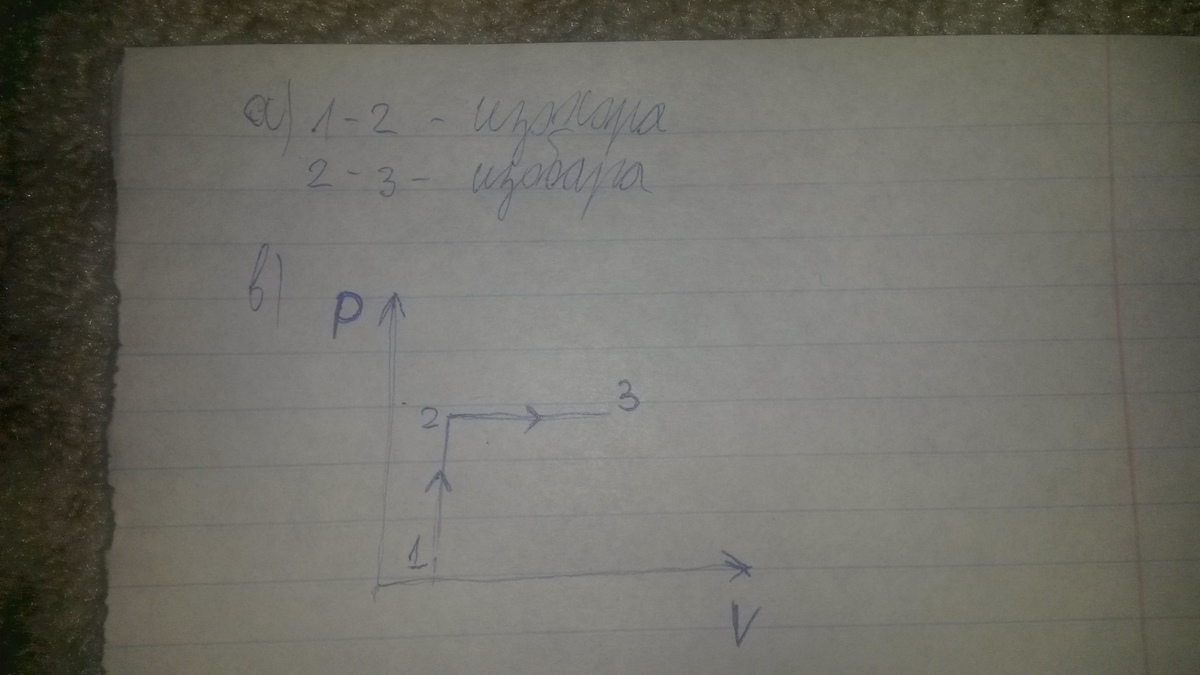 а) 1-2 - изохора
2-3 - изобара
в)
P
2
3
1
V